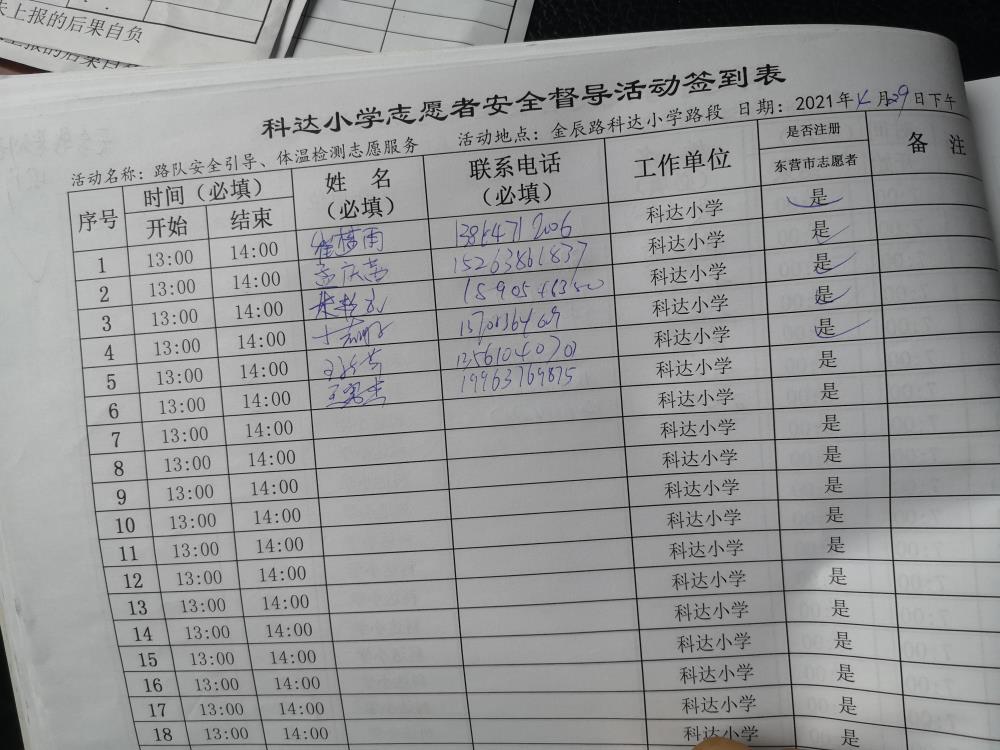 未上报的后果自负
上报的后果自
科达小学志愿者安全督导活动签到表
活动名称：路队安全引导、体温检测志愿服务 活动地点：金辰路科达小学路段 日期：2021年4月29日下午
序号 时间（必填） 姓 名（必填） 联系电话（必填） 工作单位 是否注册东营市志愿者 备 注
开始 结束
1 13:00 14:00 科达小学 是
2 13:00 14:00 15263861837 科达小学 是
3 13:00 14:00 科达小学 是
4 13:00 14:00 科达小学 是
5 13:00 14:00 科达小学 是
6 13:00 14:00 19963769875 科达小学 是
7 13:00 14:00 科达小学 是
8 13:00 14:00 科达小学 是
9 13:00 14:00 科达小学 是
10 13:00 14:00 科达小学 是
11 13:00 14:00 科达小学 是
12 13:00 14:00 科达小学 是
13 13:00 14:00 科达小学 是
14 13:00 14:00 科达小学 是
15 13:00 14:00 科达小学 是
16 13:00 14:00 科达小学 是
17 13:00 14:00 科达小学 是
18 13:00 14:00 科达小学 是